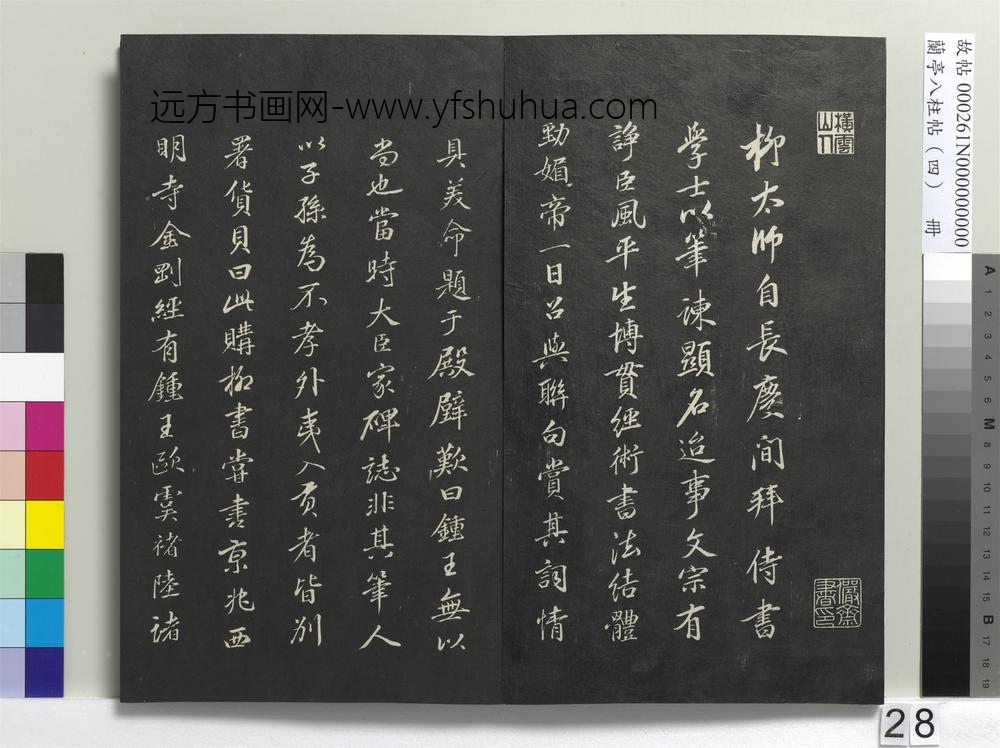 柳太師自長慶間拜侍書
學士以筆諫顯名迨事文宗有
諍臣風平生博貫經術書法結體
勁媚帝一日召與聯句賞其詞情
具美命題于殿壁歎曰鍾王無以
尚也當時大臣家碑誌非其筆人
以子孫為不孝外夷入貢者皆別
署貨貝曰此購柳書嘗書京兆西
明寺金剛經有鍾王歐虞褚陸諸
橫雲山人
儼齋書印
远方书画网-www.yfshuhua.com
故帖 000261N000000000
蘭亭八柱帖(四) 冊
28
A 1 2 3 4 5 6 M 8 9 10 11 12 13 14 15 B 17 18 19